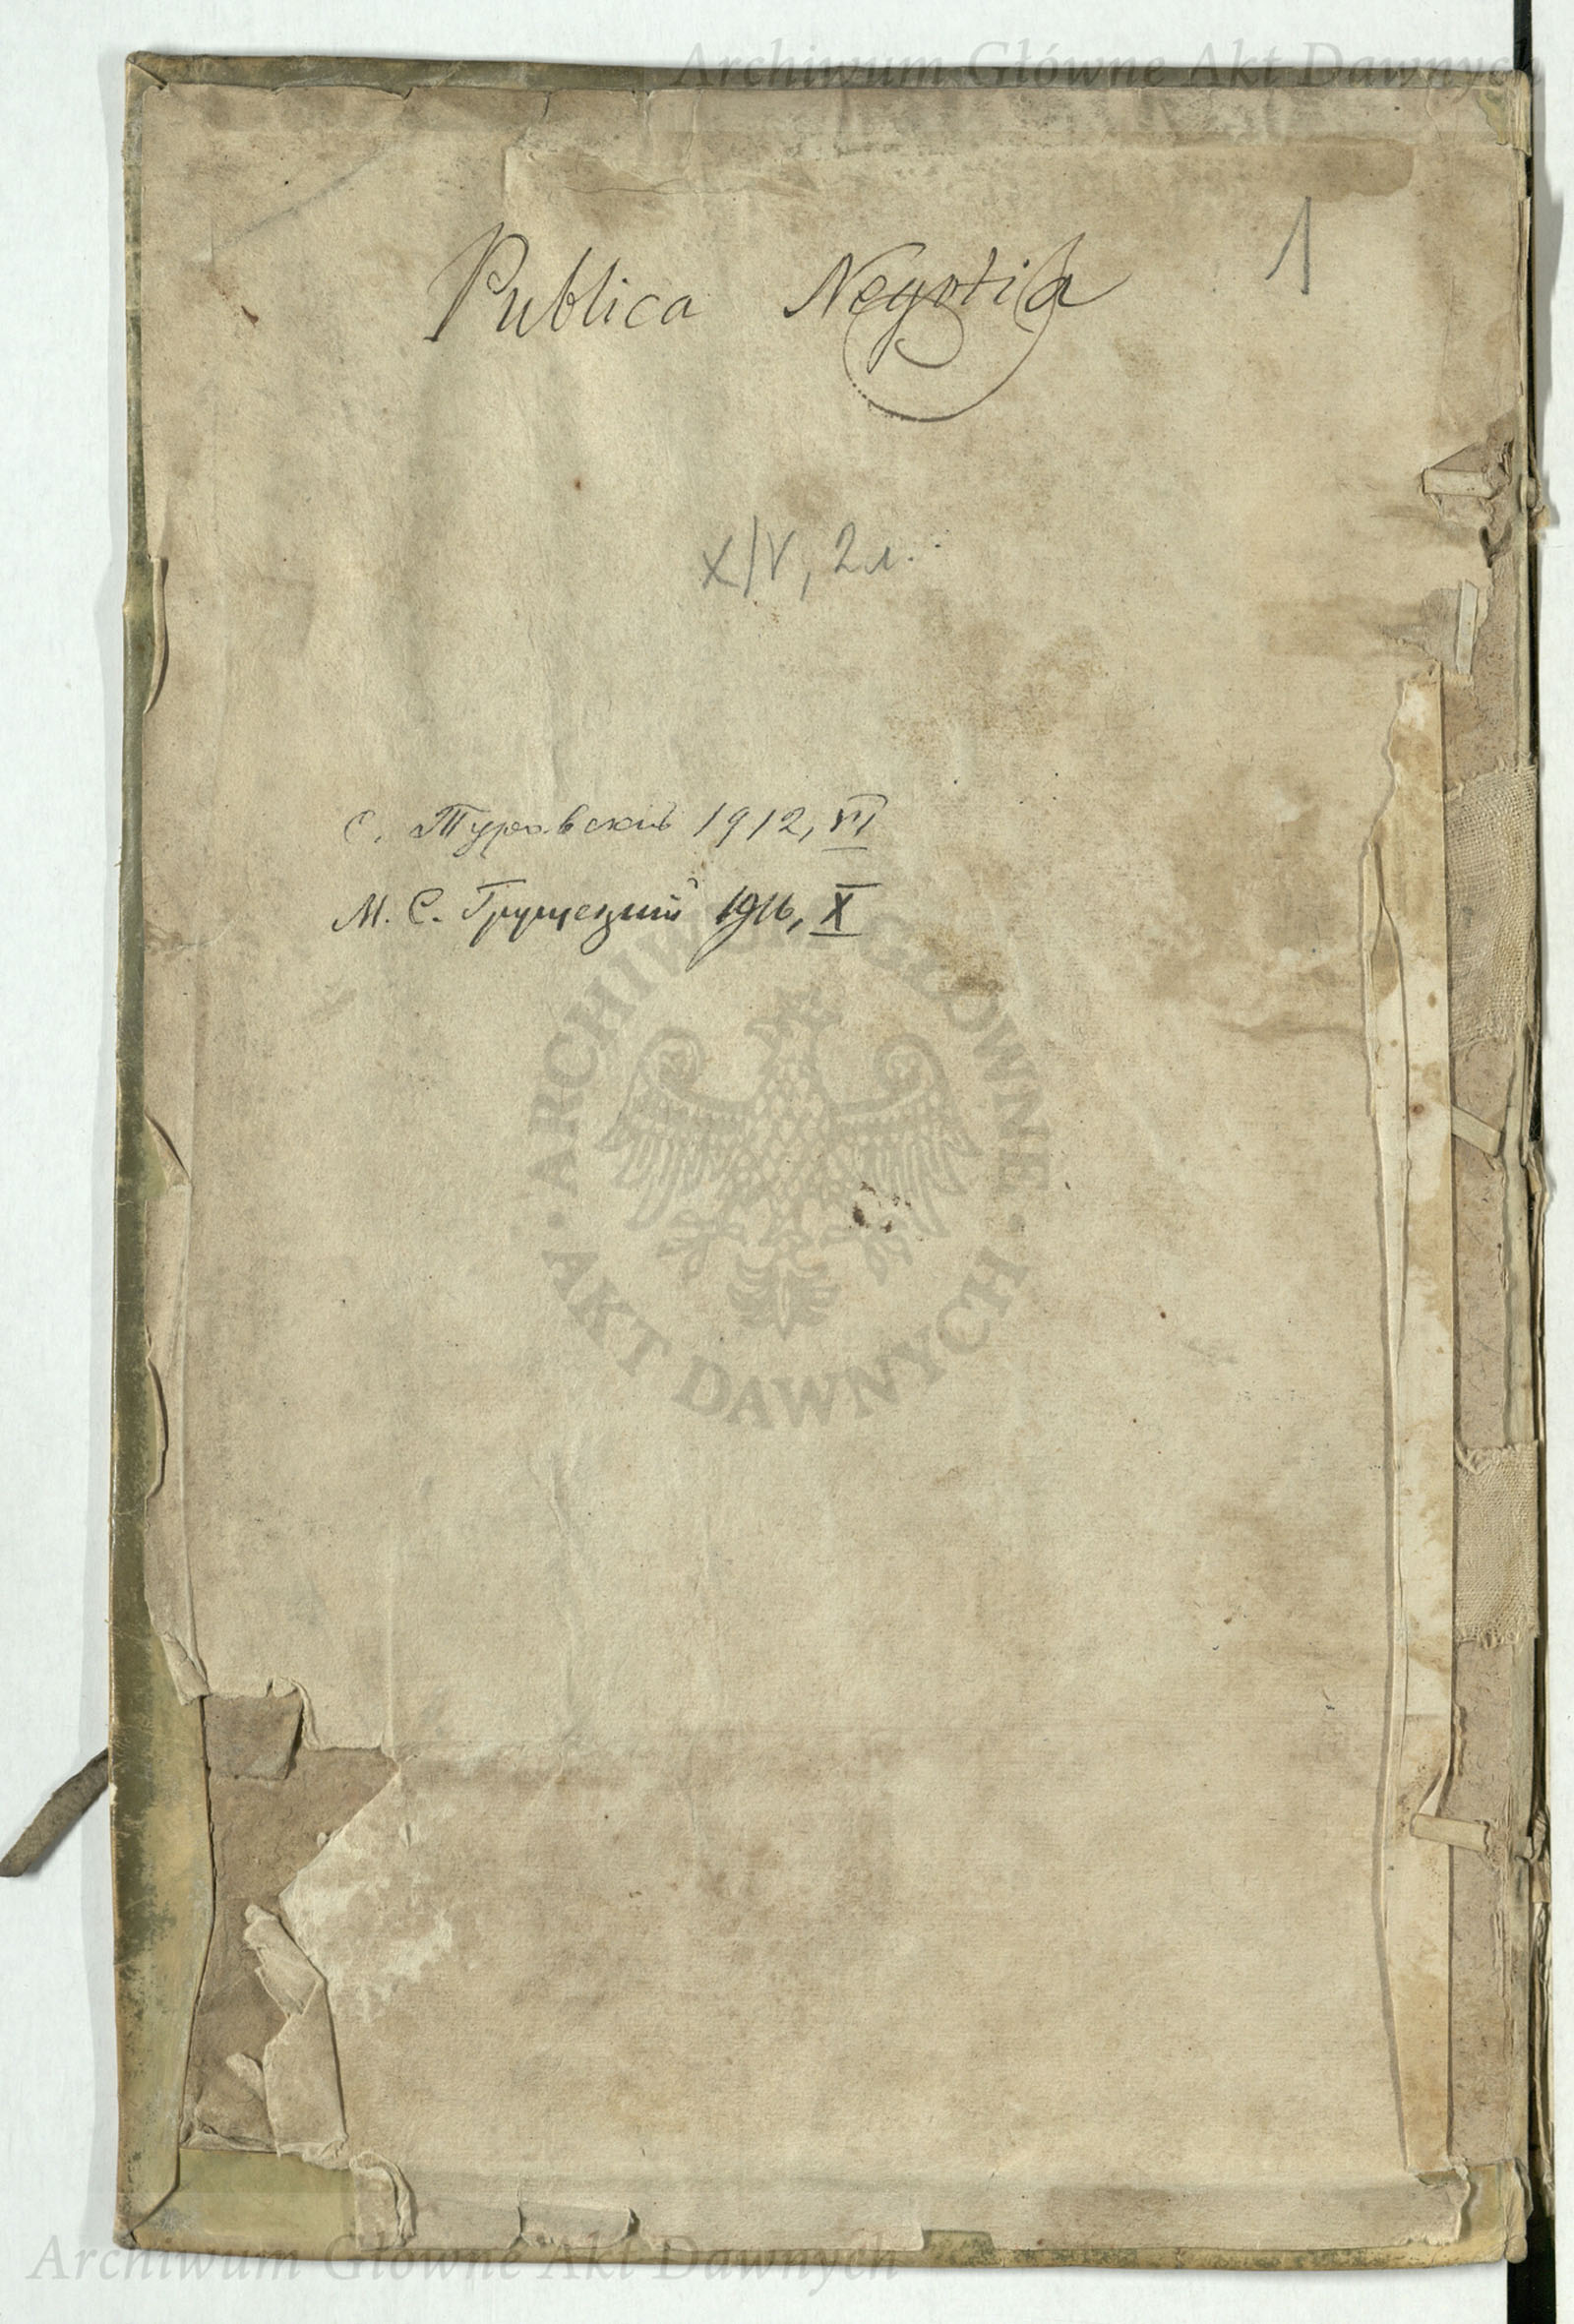 Archiwum Główne Akt Dawnych
Publica Negotia
1
XIV, 2 л.
С. Туровский 1912, VI
М. С. Грушецкий 1916, X
ARCHIWUM GŁÓWNE
AKT DAWNYCH
Archiwum Główne Akt Dawnych